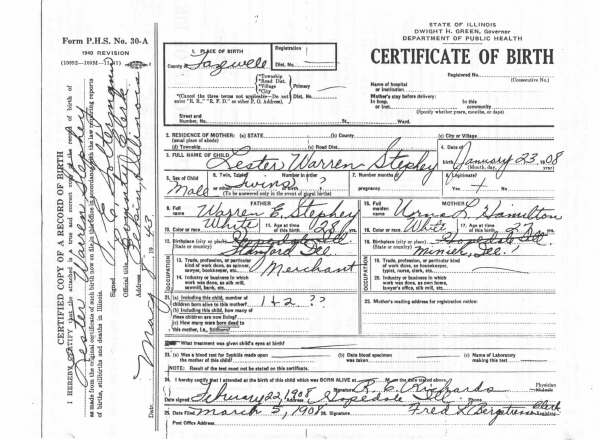 STATE OF ILLINOIS
DWIGHT H. GREEN, Governor
DEPARTMENT OF PUBLIC HEALTH
CERTIFICATE OF BIRTH
Form P.H.S. No. 30-A
1940 REVISION
Registered No.
(Consecutive No.)
1. PLACE OF BIRTH
Registration
County of Tazewell Dist. No.
*Township
*Road Dist.
*Village
*City
Primary
Dist. No.
(*Cancel the three terms not applicable—Do not
enter "R. R.," "R. F. D." or other P. O. Address)
Street and
Number, No. St., Ward.
Name of hospital
or institution
Mother's stay before delivery:
In hosp. In this
or inst. community
(Specify whether years, months, or days)
2. RESIDENCE OF MOTHER: (a) STATE (b) County (c) City or Village
(usual place of abode)
(d) Township (e) Road Dist.
3. FULL NAME OF CHILD Lester Warren Stephey
4. Date of birth January 23, 1908
(Month, day, year)
5. Sex of Child Male
6. Twin, Triplet Twins Number in order ?
(To be answered only in the event of plural births)
7. Number months of
pregnancy
8. Legitimate?
Yes +
FATHER
MOTHER
9. Full
name Warren E. Stephey
Full
maiden
name L. Hamilton
10. Color or race White 11. Age at time
of this birth 28 yrs.
Color or race White Age at time
of this birth 27 yrs.
12. Birthplace (city or place) Hopedale Ill
(State or country) Stanford Ill.
Birthplace (city or place) Hopedale Ill
(State or country) Minier, Ill.
OCCUPATION
13. Trade, profession, or particular
kind of work done, as spinner,
sawyer, bookkeeper, etc. Merchant
14. Industry or business in which
work was done, as silk mill,
sawmill, bank, etc.
OCCUPATION
Trade, profession, or particular kind
of work done, as housekeeper,
typist, nurse, clerk, etc.
Industry or business in which
work was done, as own home,
lawyer's office, silk mill, etc.
21. (a) Including this child, number of
children born alive to this mother? 1 & 2 ? ?
(b) Including this child, how many of
these children are now living?
(c) How many were born dead to
this mother, i.e., Stillborn?
22. Mother's mailing address for registration notice:
What treatment was given child's eyes at birth?
23. (a) Was a blood test for Syphilis made upon
the mother of this child?
(b) Date blood specimen
was taken
(c) Name of Laboratory
making this test
NOTE: Result of the test must not be stated on this certificate.
24. I hereby certify that I attended at the birth of this child which was BORN ALIVE at M. on the date stated above.
Signature R. E. Richards Physician
Date signed February 22, 1908 Address Hopedale Ill. Phone
25. Date Filed March 5, 1908 26. Signature Fred L. Clerk
Post Office Address
CERTIFIED COPY OF A RECORD OF BIRTH
I HEREBY CERTIFY that the attached is a true and correct copy of the record of birth of
Lester Warren Stephey
as made from the original certificate of such birth now on file in this office in accordance with the law requiring reports
of births, stillbirths and deaths in Illinois.
Signed
Official title County Clerk
Address Illinois
Date May 8 1943